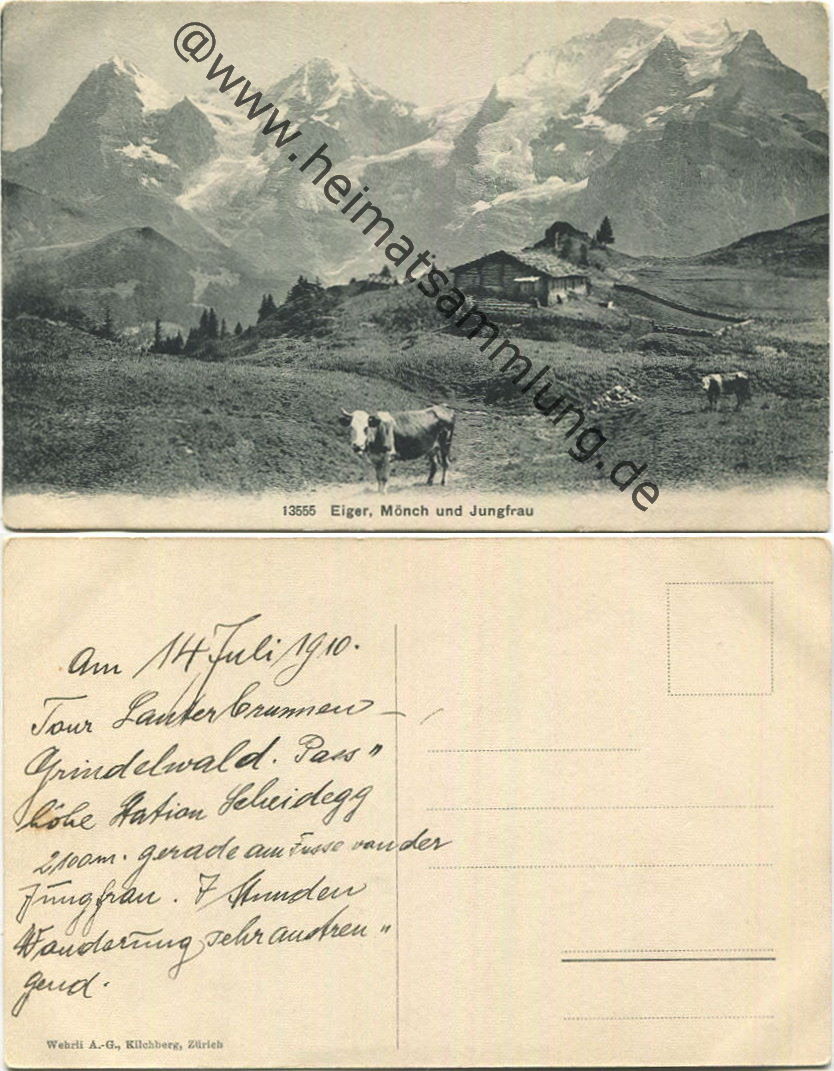 @www.heimatsammlung.de
13555 Eiger, Mönch und Jungfrau
Am 14 Juli 1910.
Tour Lauterbrunnen -
Grindelwald. Pass"
höhe Station Scheidegg
2100m. gerade am Fusse von der
Jungfrau. 7 Stunden
Wanderung sehr anstren"
gend.
Wehrli A.-G., Kilchberg, Zürich